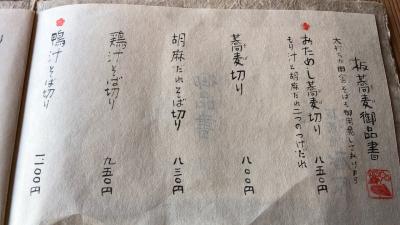 板蕎麦御品書
太打ち田舎そばも御用意しております
おためし蕎麦切り 八五〇円
もり汁と胡麻だれ二つのつけだれ
蕎麦切り 八〇〇円
胡麻だれそば切り 八三〇円
鶏汁そば切り 九五〇円
鴨汁そば切り 一二〇〇円